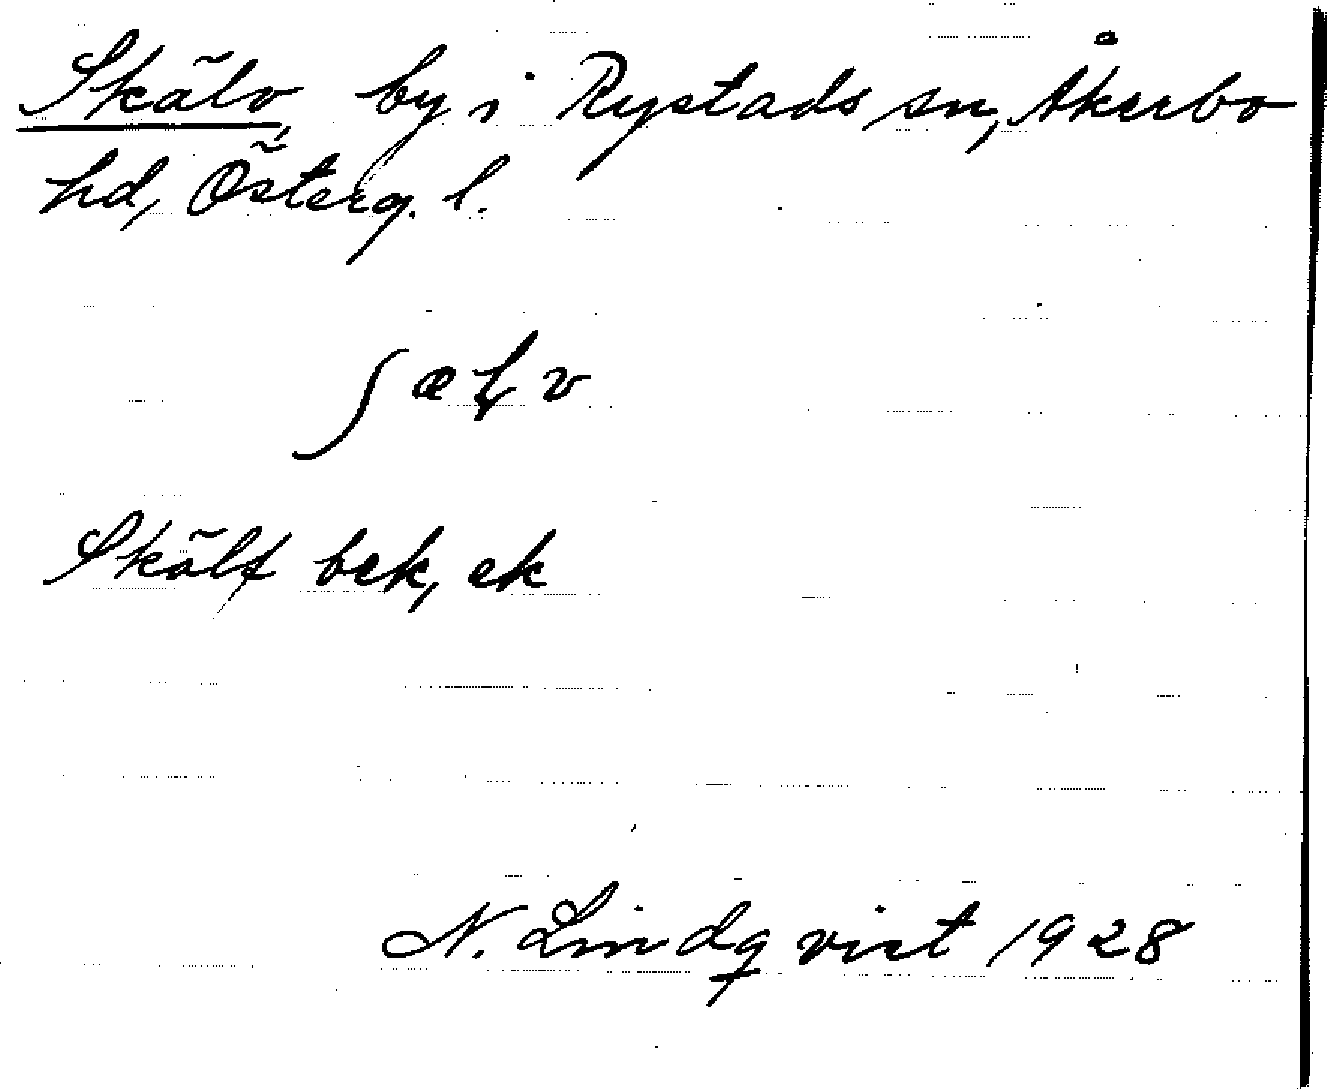 Skälv, by i Rystads sn, Åkerbo
hd, Österg. l.
ʃælv
Skälf bek, ek
N. Lindqvist 1928